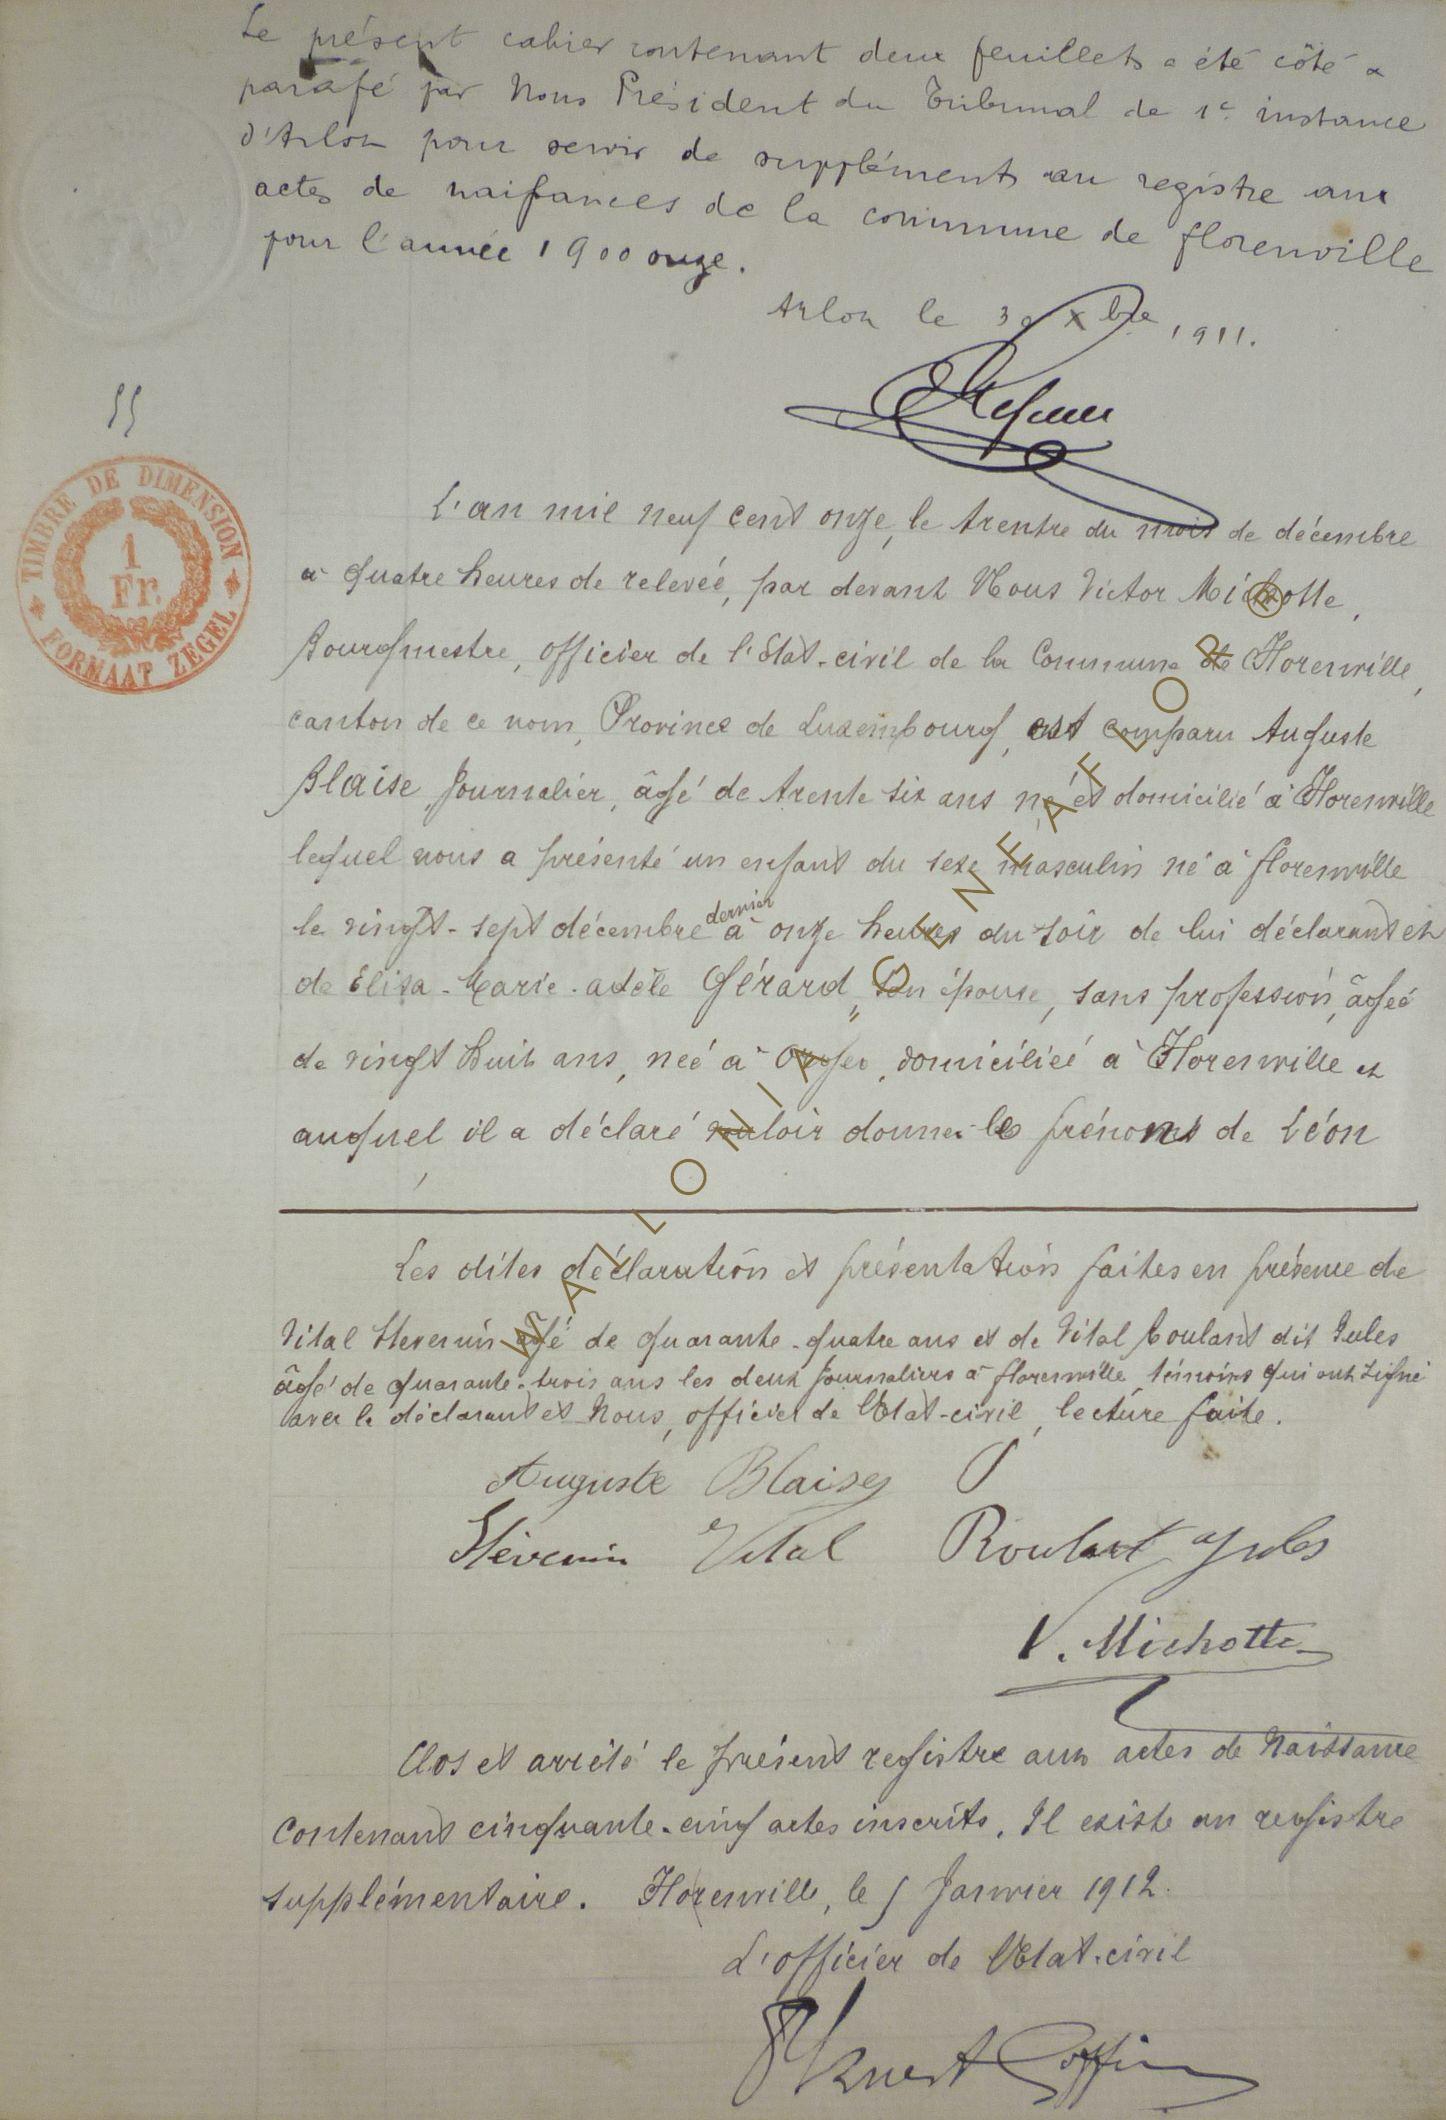 Le présent cahier contenant deux feuillets a été côté &
parafé par Nous Président du Tribunal de 1e instance
d'Arlon pour servir de suppléments au registre aux
actes de naissances de la commune de florenville
pour l'année 1900 onze.
Arlon le 30 Xbre 1911.
55
TIMBRE DE DIMENSION
1
Fr.
FORMAAT ZEGEL
L'an mil neuf cent onze, le trentre du mois de décembre
à quatre heures de relevée, par devant Nous Victor Michotte,
Bourgmestre, officier de l'Etat-civil de la Commune de Florenville,
canton de ce nom, Province de Luxembourg, est comparu Auguste
Blaise, Journalier, âgé de trente six ans né et domicilié à Florenville
lequel nous a présenté un enfant du sexe masculin né à florenville
le vingt-sept décembre dernier à onze heures du soir de lui déclarant et
de Elisa-Marie-adèle Gérard, son épouse, sans profession, âgée
de vingt huit ans, née à Orgeo, domiciliée à Florenville et
auquel il a déclaré vouloir donner les prénoms de Léon
Les dites déclaration et présentation faites en présence de
Vital Hevenin âgé de quarante-quatre ans et de Vital Roulant dit Jules
âgé de quarante-trois ans les deux Journaliers à florenville, témoins qui ont signé
avec le déclarant et Nous, officier de l'Etat-civil, lecture faite.
Auguste Blaise
Hévenin Vital Jules
V. Michotte
Clos et arrêté le présent registre aux actes de Naissance
contenant cinquante-cinq actes inscrits. Il existe un registre
supplémentaire. Florenville, le 5 Janvier 1912.
L'officier de l'Etat-civil
WALLONIA "GENEAFLOR®